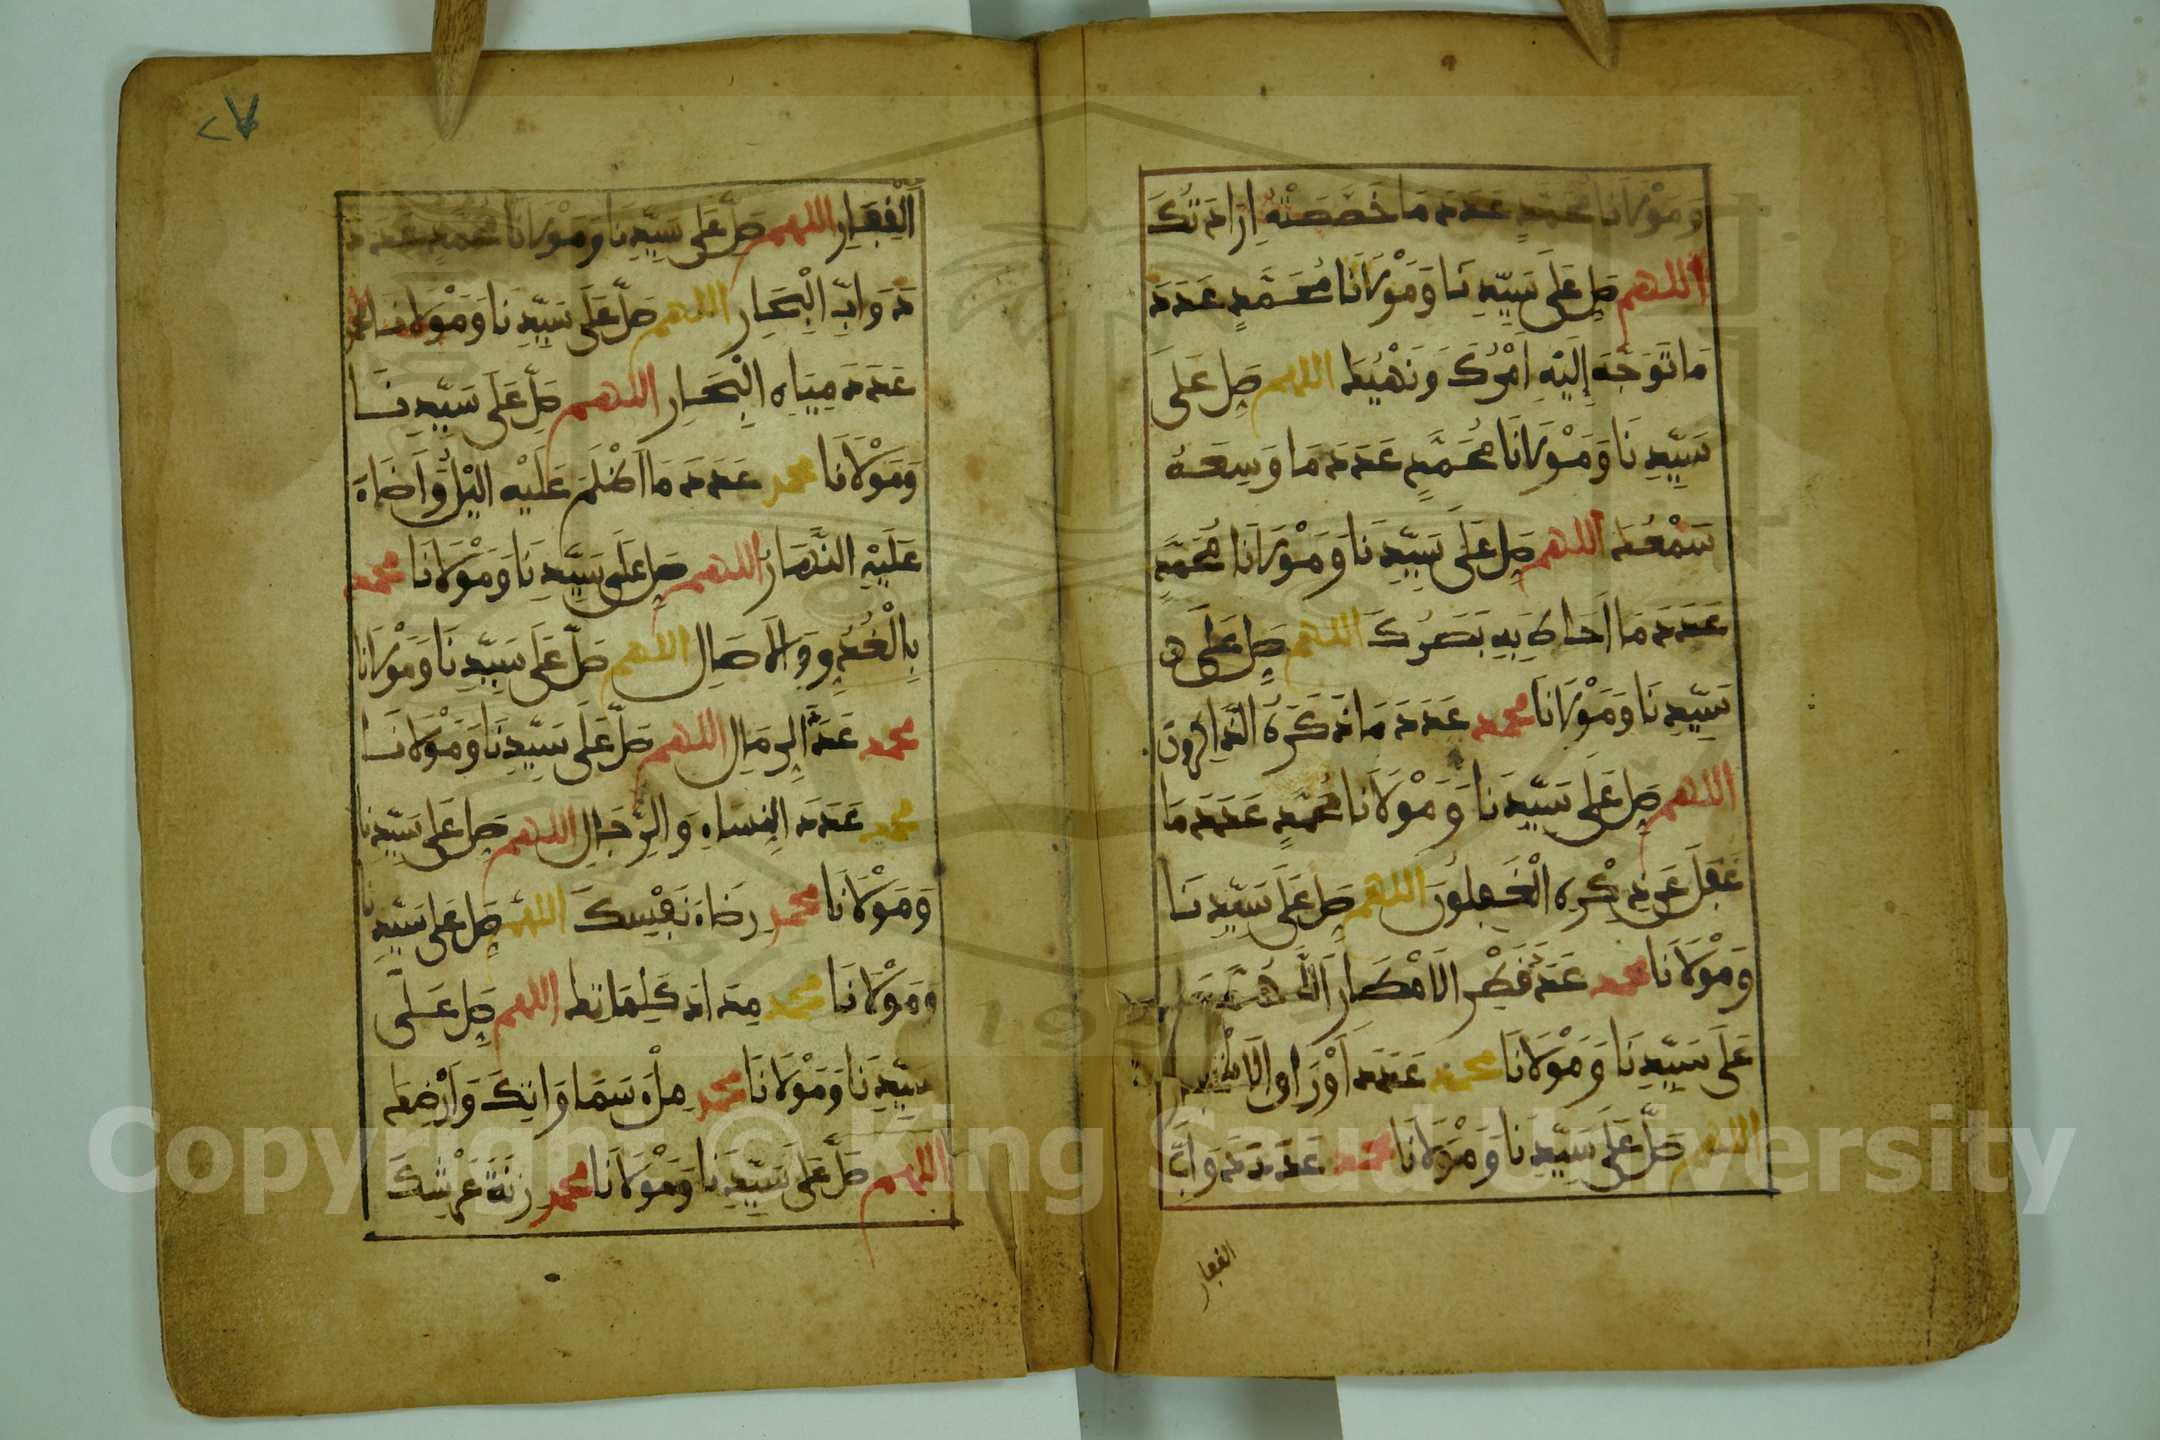 وَمَوْلَانَا مُحَمَّدٍ عَدَدَ مَا خَصَّصَتْهُ إِرَادَتُكَ
اللهم صل عَلَى سَيِّدِنَا وَمَوْلَانَا مُحَمَّدٍ عَدَدَ
مَا تَوَجَّهَ إِلَيْهِ أَمْرُكَ وَنَهْيُكَ اللهم صَلِ عَلَى
سَيِّدِنَا وَمَوْلَانَا مُحَمَّدٍ عَدَدَ مَا وَسِعَهُ
سَمْعُكَ اللهم صَلِ عَلَى سَيِّدِنَا وَمَوْلَانَا مُحَمَّدٍ
عَدَدَ مَا أَحَاطَ بِهِ بَصَرُكَ اللهم صَلِ عَلَى
سَيِّدِنَا وَمَوْلَانَا محمد عَدَدَ مَا ذَكَرَهُ الذَّاكِرُونَ
اللهم صَلِ عَلَى سَيِّدِنَا وَمَوْلَانَا مُحَمَّدٍ عَدَدَ مَا
غَفَلَ عَن ذِكْرِهِ الْغَفِلُونَ اللهم صَلِ عَلَى سَيِّدِنَا
وَمَوْلَانَا محمد عَدَدَ قَطْرِ الَامْطَارِ اللَّهُمَّ صَلِ
عَلَى سَيِّدِنَا وَمَوْلَانَا محمد عَدَدَ أَوْرَاقِ الَاشْجَارِ
اللهم صَلِّ عَلَى سَيِّدِنَا وَمَوْلَانَا محمد عَدَدَ دَوَابِّ
القفار
٢٧
الْقِفَارِ اللهم صَلِّ عَلَى سَيِّدِنَا وَمَوْلَانَا مُحَمَّدٍ عَدَدَ
دَوَابِّ الْبِحَارِ اللهم صَلِّ عَلَى سَيِّدِنَا وَمَوْلَانَا محمد
عَدَدَ مِيَاهِ الْبِحَارِ اللهم صَلِّ عَلَى سَيِّدِنَا
وَمَوْلَانَا محمد عَدَدَ مَا أَظْلَمَ عَلَيْهِ اليْلُ وَأَضَاءَ
عَلَيْهِ النَّهَارُ اللهم صَلِ عَلَى سَيِّدِنَا وَمَوْلَانَا محمد
بِالْغُدُوِّ وَالَاصَالِ اللهم صَلِّ عَلَى سَيِّدِنَا وَمَوْلَانَا
محمد عَدَدَ الرِمَالِ اللهم صَلِّ عَلَى سَيِّدِنَا وَمَوْلَانَا
محمد عَدَدَ النِسَاءِ وَالرِّجَالِ اللهم صَلِ عَلَى سَيِّدِنَا
وَمَوْلَانَا محمد رِضَاءَ نَفْسِكَ اللهم صَلِ عَلَى سَيِّدِنَا
وَمَوْلَانَا محمد مِدَادَ كَلِمَاتِكَ اللهم صَلِ عَلَى
سَيِّدِنَا وَمَوْلَانَا محمد مِلْءَ سَمَاوَاتِكَ وَأَرْضِكَ
اللهم صَلِّ عَلَى سَيِّدِنَا وَمَوْلَانَا محمد زِنَةَ عَرْشِكَ
Copyright © King Saud University
1957